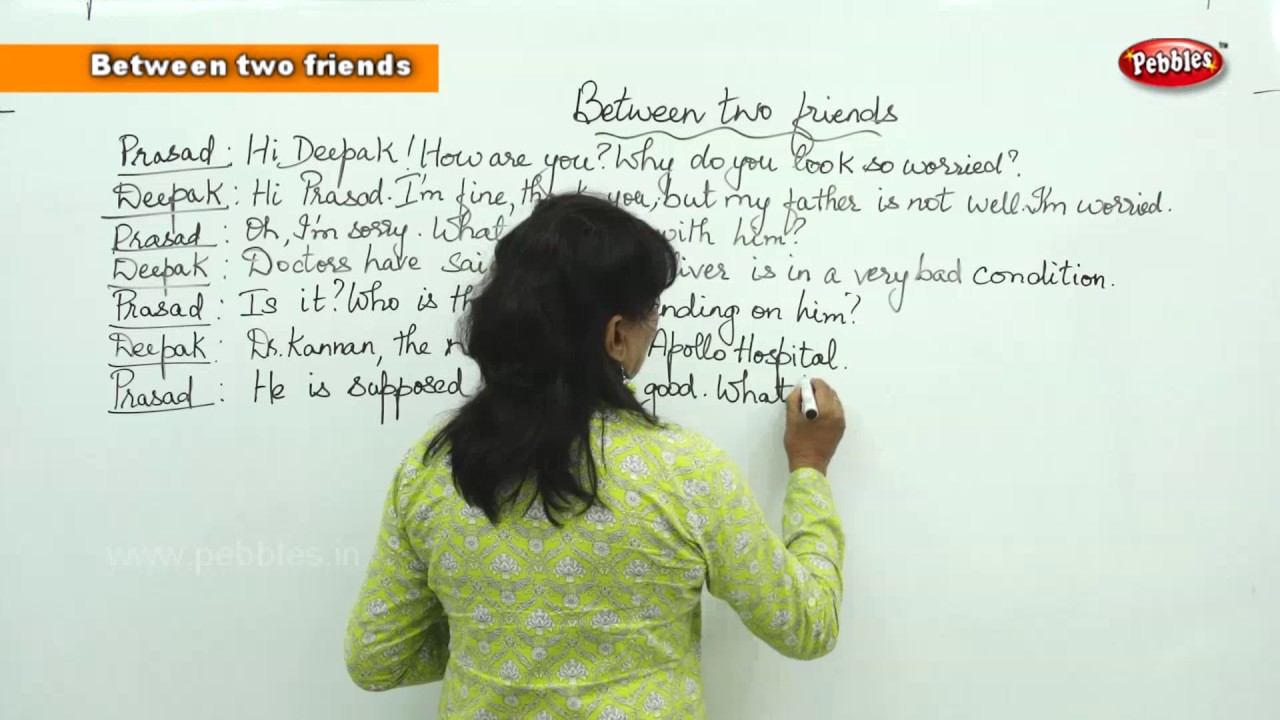 Between two friends
Pebbles TM
Between two friends
Prasad : Hi Deepak! How are you? Why do you look so worried?
Deepak : Hi Prasad. I'm fine, you, but my father is not well. I'm worried.
Prasad : Oh, I'm sorry. What with him?
Deepak : Doctors have liver is in a very bad condition.
Prasad : Is it? Who is on him?
Deepak : Dr. Kannan, the Apollo Hospital.
Prasad : He is supposed good. What
www.pebbles.in